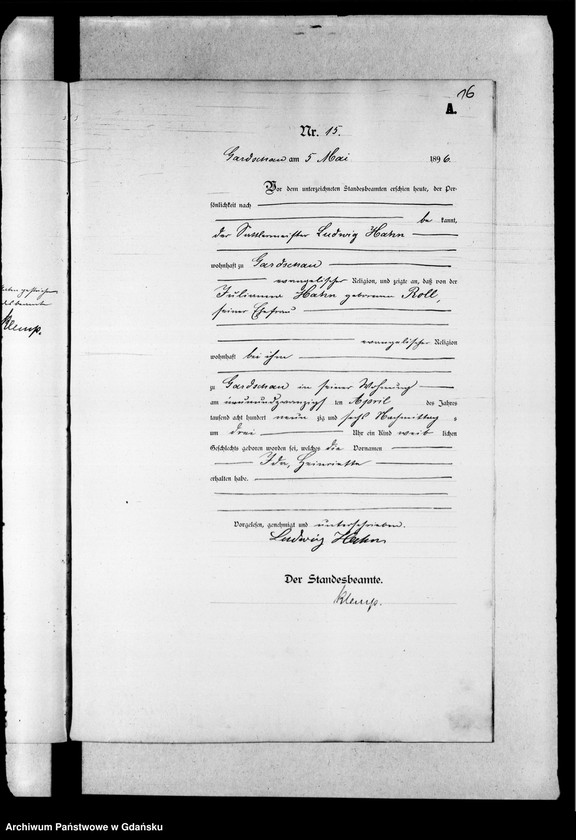 16
A.
Nr. 15.
Gardschau am 5 Mai 1896.
Vor dem unterzeichneten Standesbeamten erschien heute, der Per-
sönlichkeit nach
be kannt,
der Sattlermeister Ludwig Hahn
wohnhaft zu Gardschau
evangelischer Religion, und zeigte an, daß von der
Julianna Hahn geborenen Roll,
seiner Ehefrau
evangelischer Religion
wohnhaft bei ihm
zu Gardschau in seiner Wohnung
am neunundzwanzigsten April des Jahres
tausend acht hundert neun zig und sechs Nachmittags
um drei Uhr ein Kind weib lichen
Geschlechts geboren worden sei, welches die Vornamen
Ida, Henriette
erhalten habe.
Vorgelesen, genehmigt und unterschrieben.
Ludwig Hahn
Der Standesbeamte.
Klemp.
Klemp.
Archiwum Państwowe w Gdańsku